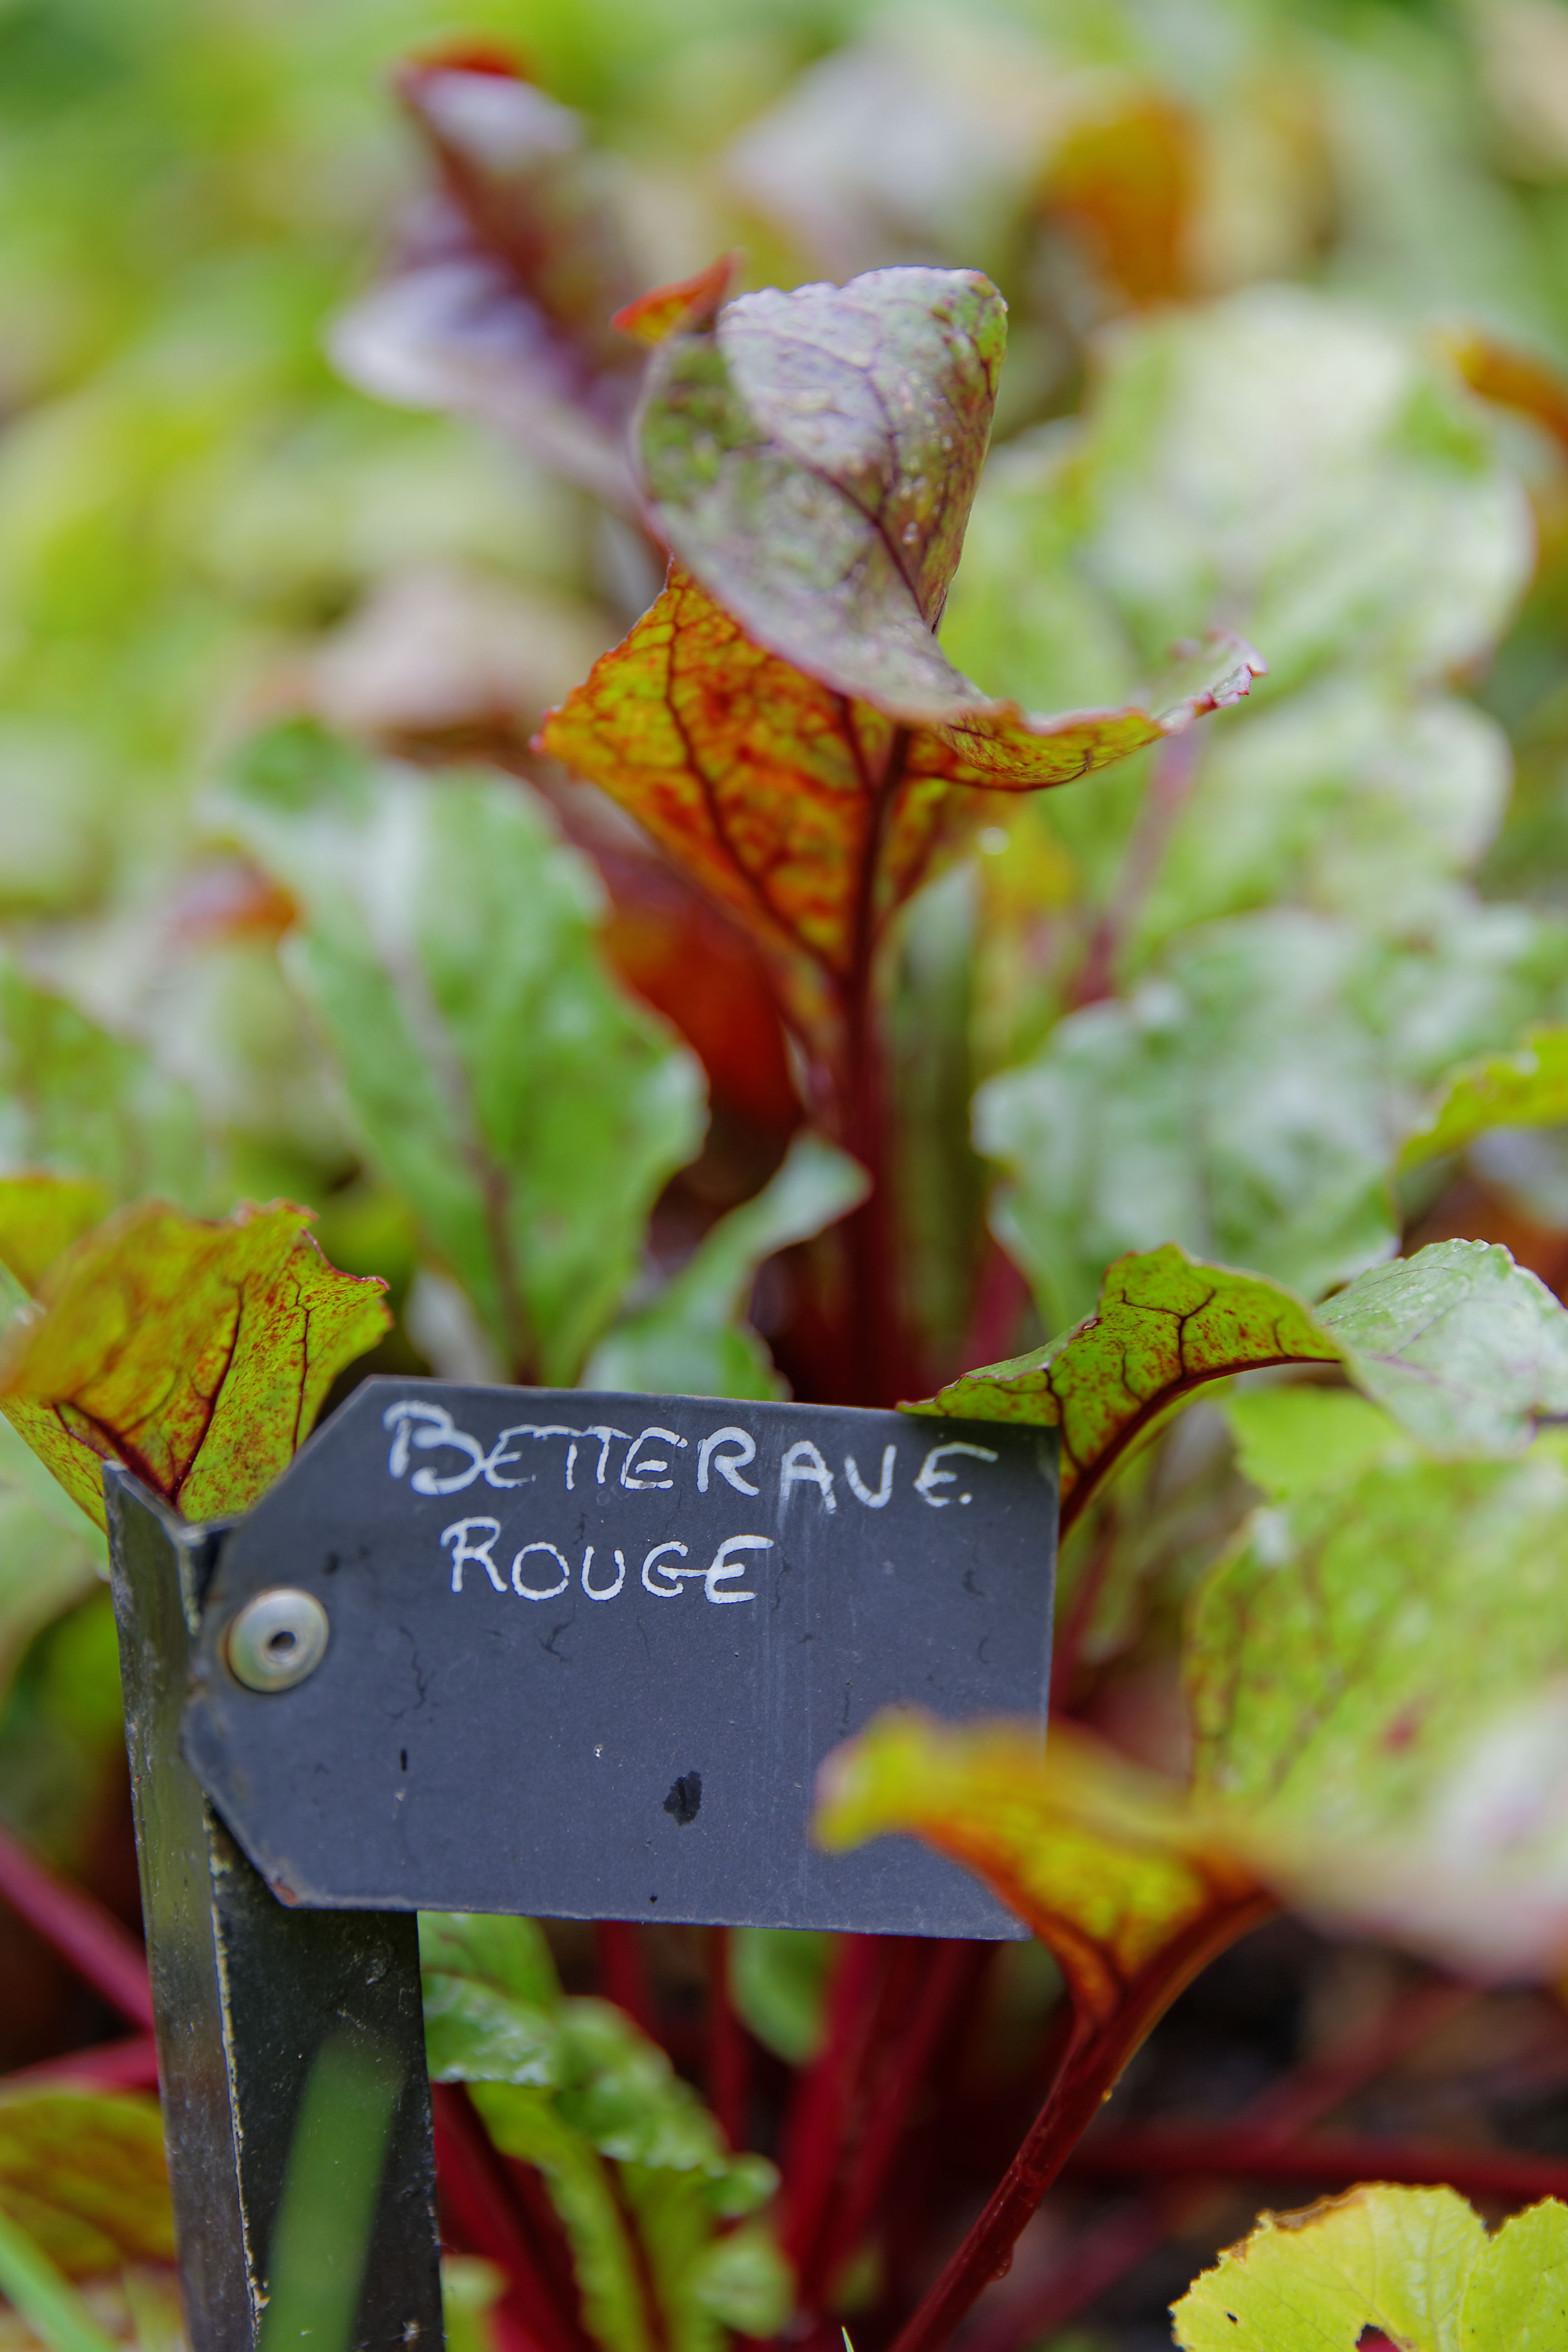 BETTERAVE
ROUGE